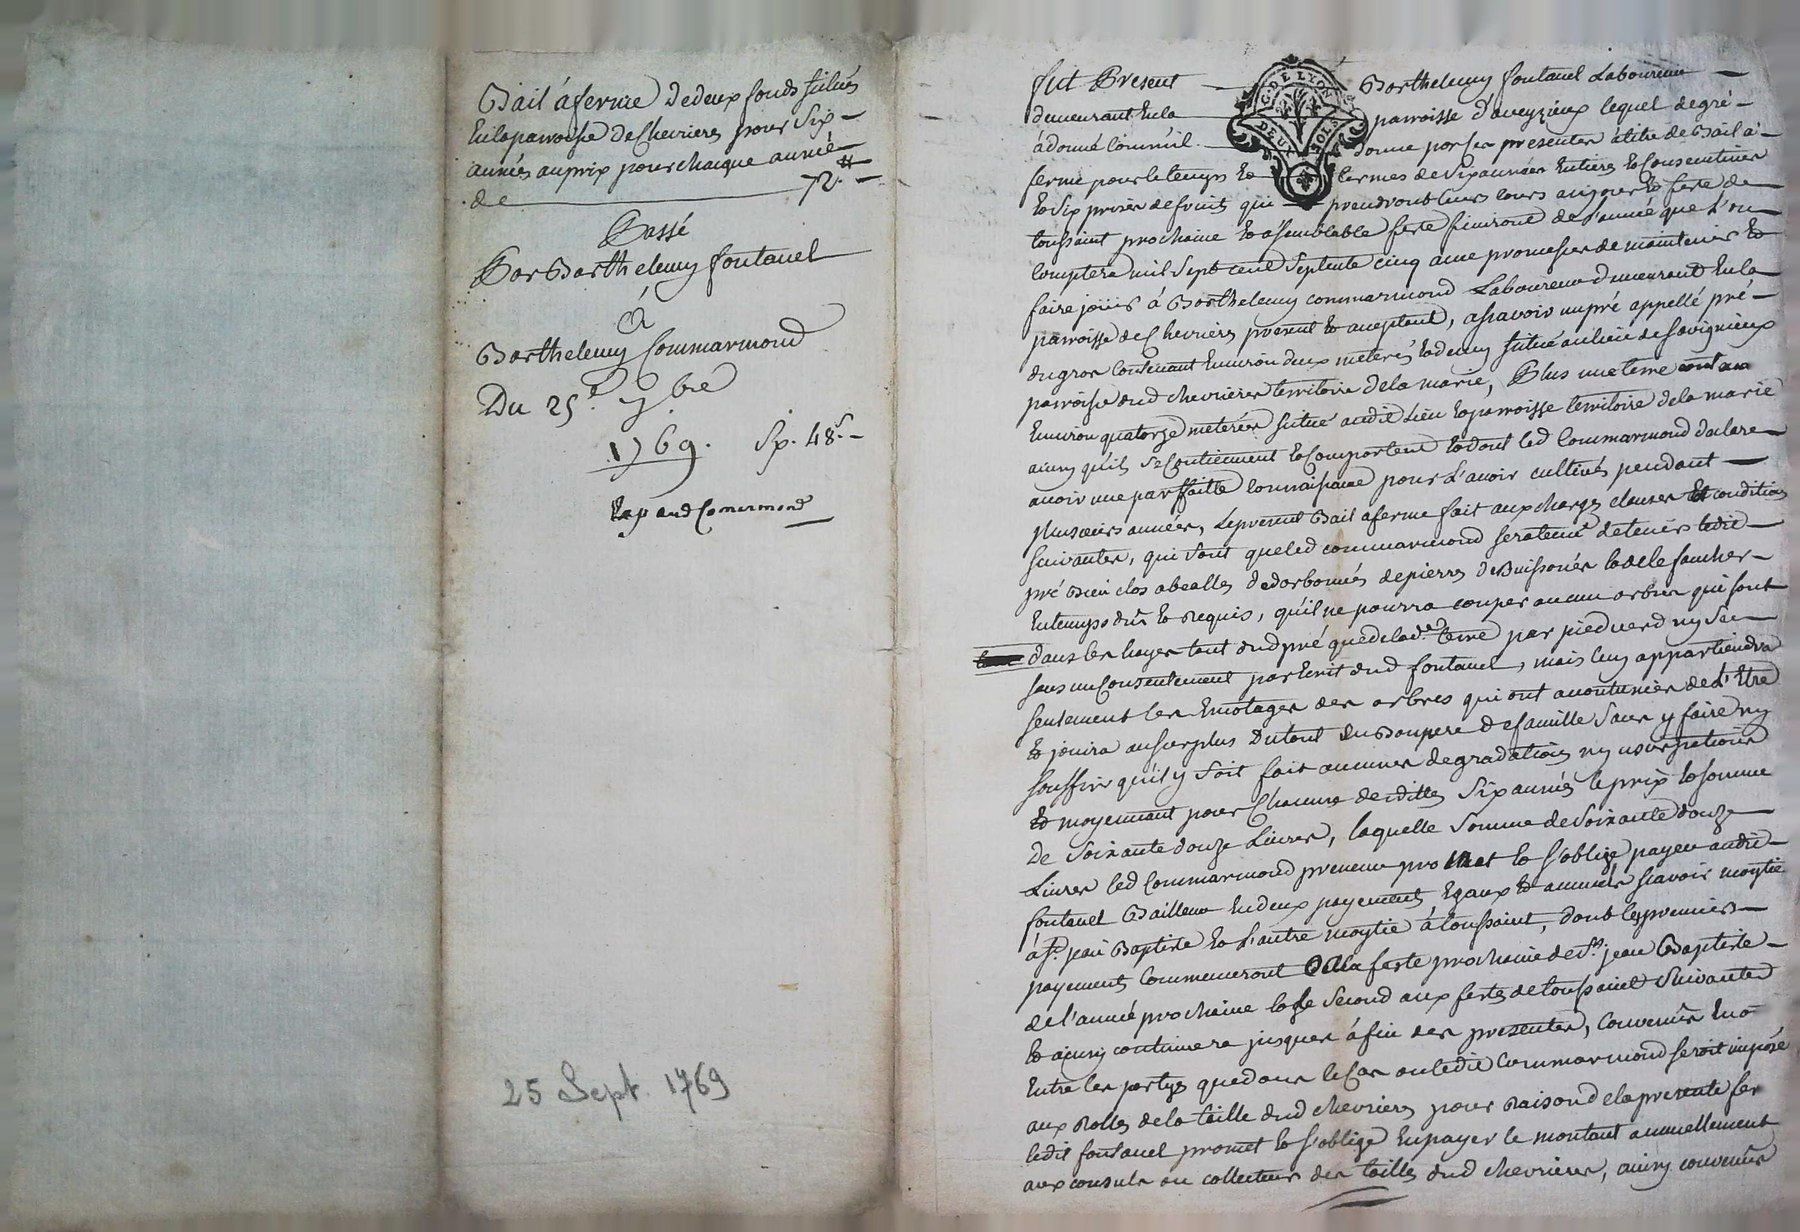 Bail á ferme de deux fonds situés
En la parroisse de Chevrieres pour Six
années au prix pour chaque année
de 72.#
Passé
Par Barthelemy fontanel
á
Barthelemy Commarmond
Du 25.e 7bre
1769. Sp. 48.s
Exp aud Comermond
25 Sept. 1769
G. DE LYON
DEUX SOLS
fut Present Barthelemy fontanel Laboureur
demeurant En la parroisse d'aveyzieux lequel de gré
á donné Comme il donne par ses presentes á titre de Bail á
ferme pour le temps Et termes de Six années Entieres Et Consecutives
Et Six prises de fruits qui prendront Leurs cours au jour Et feste de
toussaint prochaine Et á semblable feste finiront de l'année que L'on
Comptera mil Sept cent Septente cinq avec promesses de maintenir Et
faire joüir á Barthelemy commarmond Laboureur demeurant En la
parroisse de Chevrieres present Et acceptant, assavoir un pré appellé pré
du gros Contenant Environ deux meterés Et demy situé au lieu de Savignieux
parroisse dud chevrieres territoire de la marie, Plus une terre contenant
Environ quatorze meterées situé audit Lieu Et parroisse territoire de la marie
ainsy qu'ils Se Contiennent Et Comportent Et dont led Commarmond declare
avoir une parfaitte connoissance pour L'avoir cultivés pendant
plusieurs années, Le present Bail a ferme fait aux charges clauses Et conditions
suivantes, qui sont que led commarmond sera tenu de tenir ledit
pré Bien clos de pierres de Buissons Et de le faucher
En temps dû Et Requis, qu'il ne pourra couper aucun arbres qui sont
dans les hayes tant dud pré que de lad.e terre par pied verd ny Sec
sans un Consentement par Ecrit dud fontanel, mais luy appartiendra
seulement les Emotages des arbres qui ont accoutumés de L'Etre
Et jouira au surplus Du tout En Bon pere de famille Sans y faire ny
souffrir qu'il y Soit fait aucunes degradations ny usurpations
Et moyennant pour Chacune desdittes Six années le prix Et somme
De Soixante douze Livres, laquelle Somme de Soixante douze
Livres led Commarmond preneur promet Et s'oblige payer audit
fontanel Bailleur En deux payements Egaux Et annuels scavoir moytié
á St. jean Baptiste Et L'autre moytié á toussaint, dont les premiers
payements Commenceront a la feste prochaine de St. jean Baptiste
de l'année prochaine Et le Second aux festes de toussaint Suivantes
Et ainsy continuera jusques á fin des presentes, Convenu En
Entre les partyes que dans le Cas ou ledit Commarmond seroit imposé
aux Rolles de la taille dud chevrieres pour Raison de la presente ferme
ledit fontanel promet Et s'oblige En payer le montant annuellement
aux consuls ou collecteurs des tailles dud chevrieres, ainsy convenus